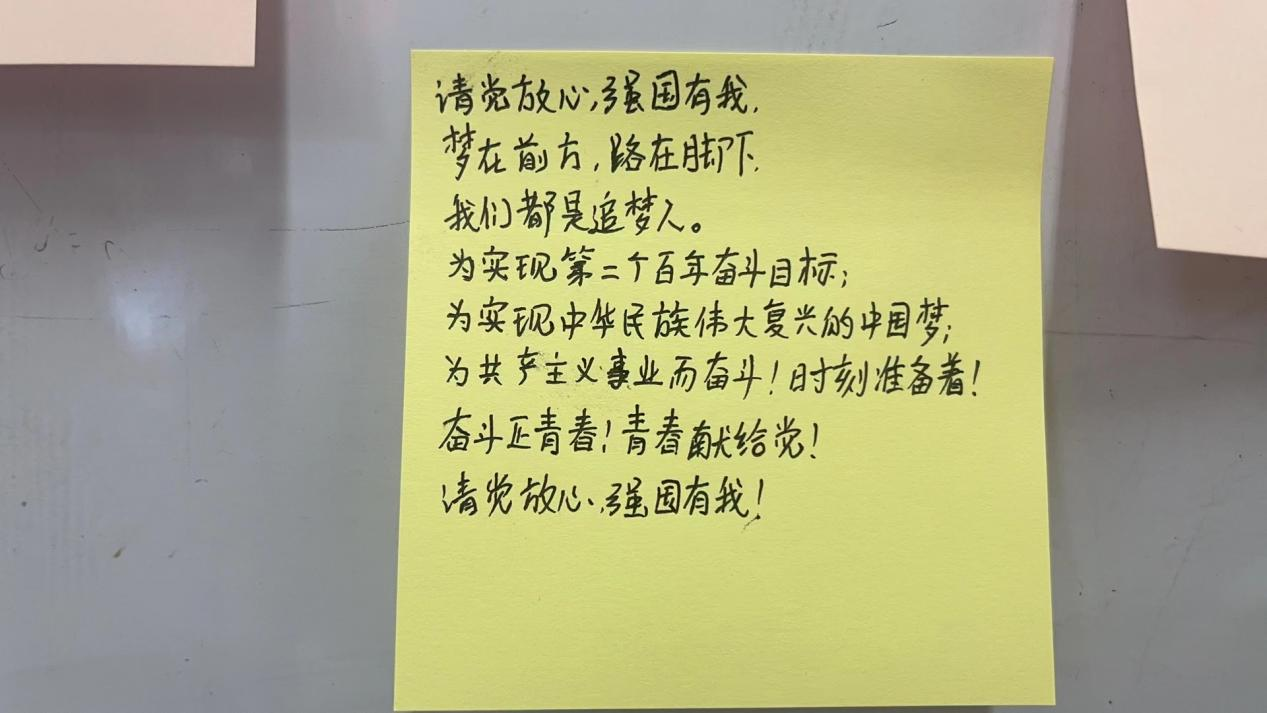 请党放心,强国有我.
梦在前方,路在脚下.
我们都是追梦人。
为实现第二个百年奋斗目标;
为实现中华民族伟大复兴的中国梦;
为共产主义事业而奋斗!时刻准备着!
奋斗正青春!青春献给党!
请党放心,强国有我!